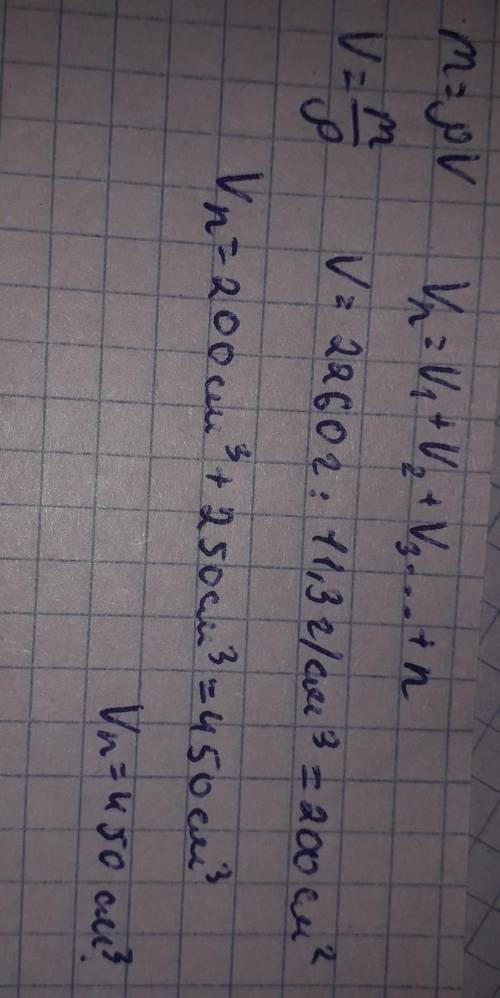 m=ρV Vn=V1+V2+V3...+n
V=m/ρ V=2260г:11,3г/см³=200см²
Vn=200см³+250см³=450см³
Vn=450см³.